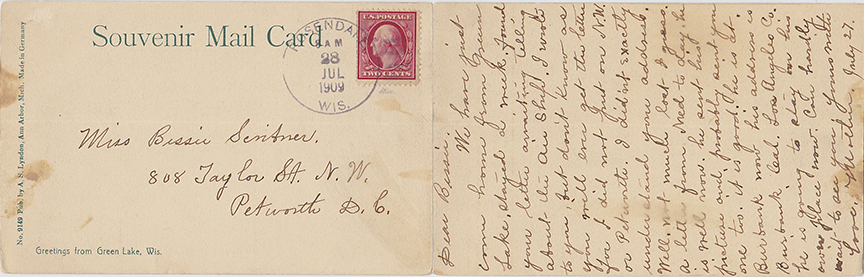 Souvenir Mail Card
ROSENDALE
8 AM
28
JUL
1909
WIS.
U.S. POSTAGE
TWO CENTS
No. 9149 Pub. by A. S. Lyndon, Ann Arbor, Mich. Made in Germany
Miss Bessie Scribner.
808 Taylor St. N. W.
Petworth D. C.
Greetings from Green Lake, Wis.
Dear Bessie.
We have just
come home from Green
Lake, stayed a week, found
your letter awaiting telling
about the Air Ship. I wrote
to you, but don't know as
you will ever get the letter
for I did not put on N.W.
or Petworth. I didn't exactly
understand your address.
Well not much lost I guess.
a letter from Ned to day, he
is well now. he sent his
picture and probably sent you
one too. it is good. he is at
Burbank now his address is
Burbank Cal. Los Angles Co.
he is going to stay on his
own place now. Can hardly
wait to see you yours mo
Love, Mother. July 27.